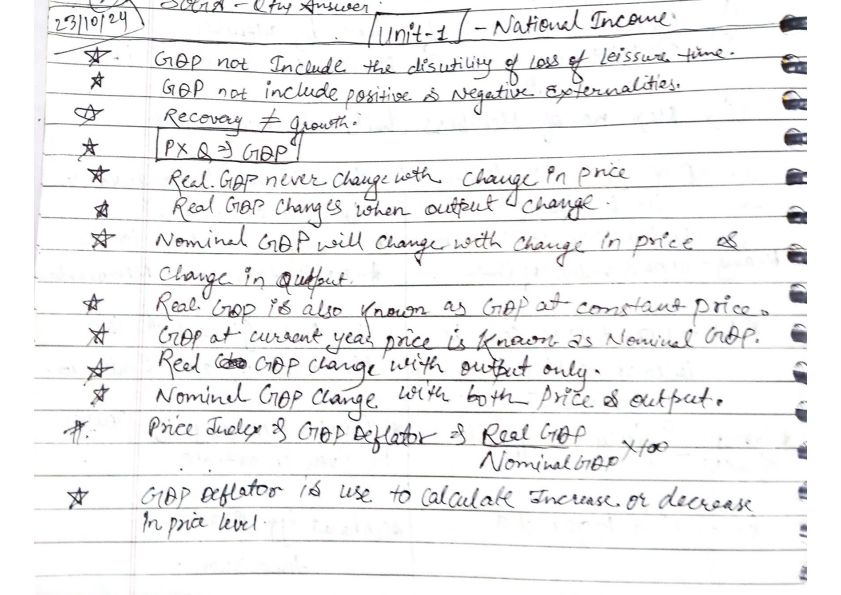 - Qty Answer.
23/10/24
Unit-1 - National Income.
☆ GDP not Include the disutility of loss of leissure time.
☆ GDP not include positive & Negative Externalities.
☆ Recovery ≠ growth.
☆ P X Q ⇒ GDP
☆ Real. GDP never Change with change in price
☆ Real GDP Changes when output change.
☆ Nominal GDP will change with change in price &
Change in output.
☆ Real GDP is also known as GDP at constant price.
☆ GDP at current year price is known as Nominal GDP.
☆ Real GDP change with output only.
☆ Nominal GDP change with both price & output.
#. Price Index & GDP Deflator ⇒ Real GDP
Nominal GDP X 100
☆ GDP Deflator is use to Calculate Increase or decrease
In price level.